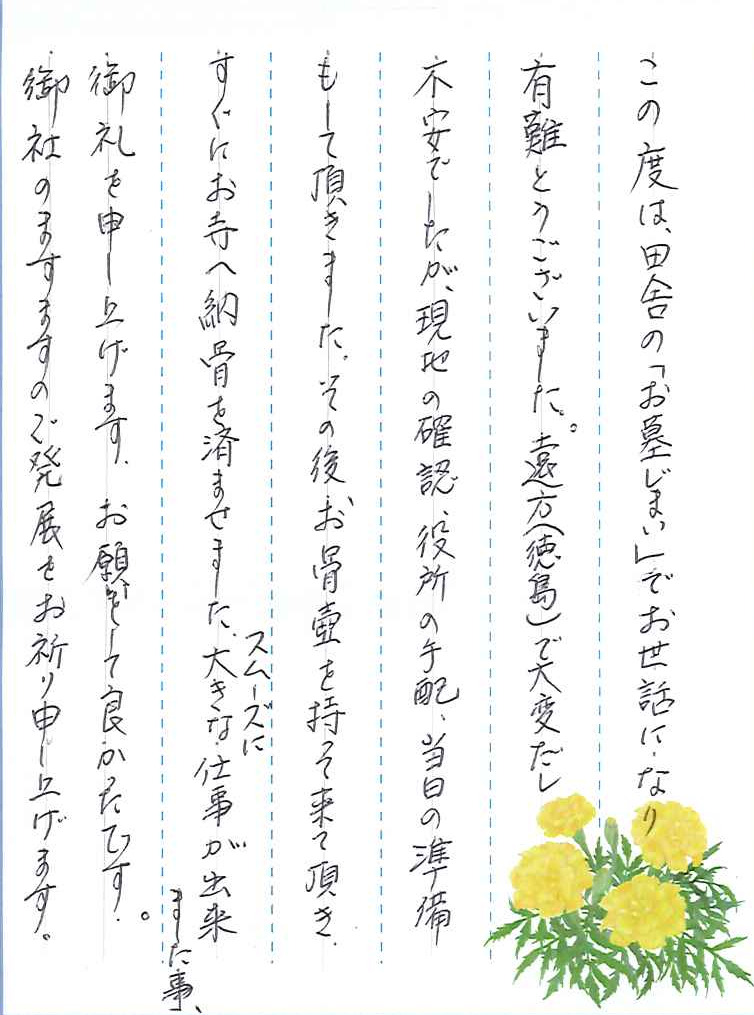 この度は、田舎の「お墓じまい」でお世話になり
有難とうございました。遠方(徳島)で大変だし
不安でしたが、現地の確認、役所の手配、当日の準備
もして頂きました。その後お骨壷を持って来て頂き、
すぐにお寺へ納骨を済ませました、大きな仕事が出来
スムーズに
ました事、
御礼を申し上げます、お願いをして良かったです。
御社のますますのご発展をお祈り申し上げます。